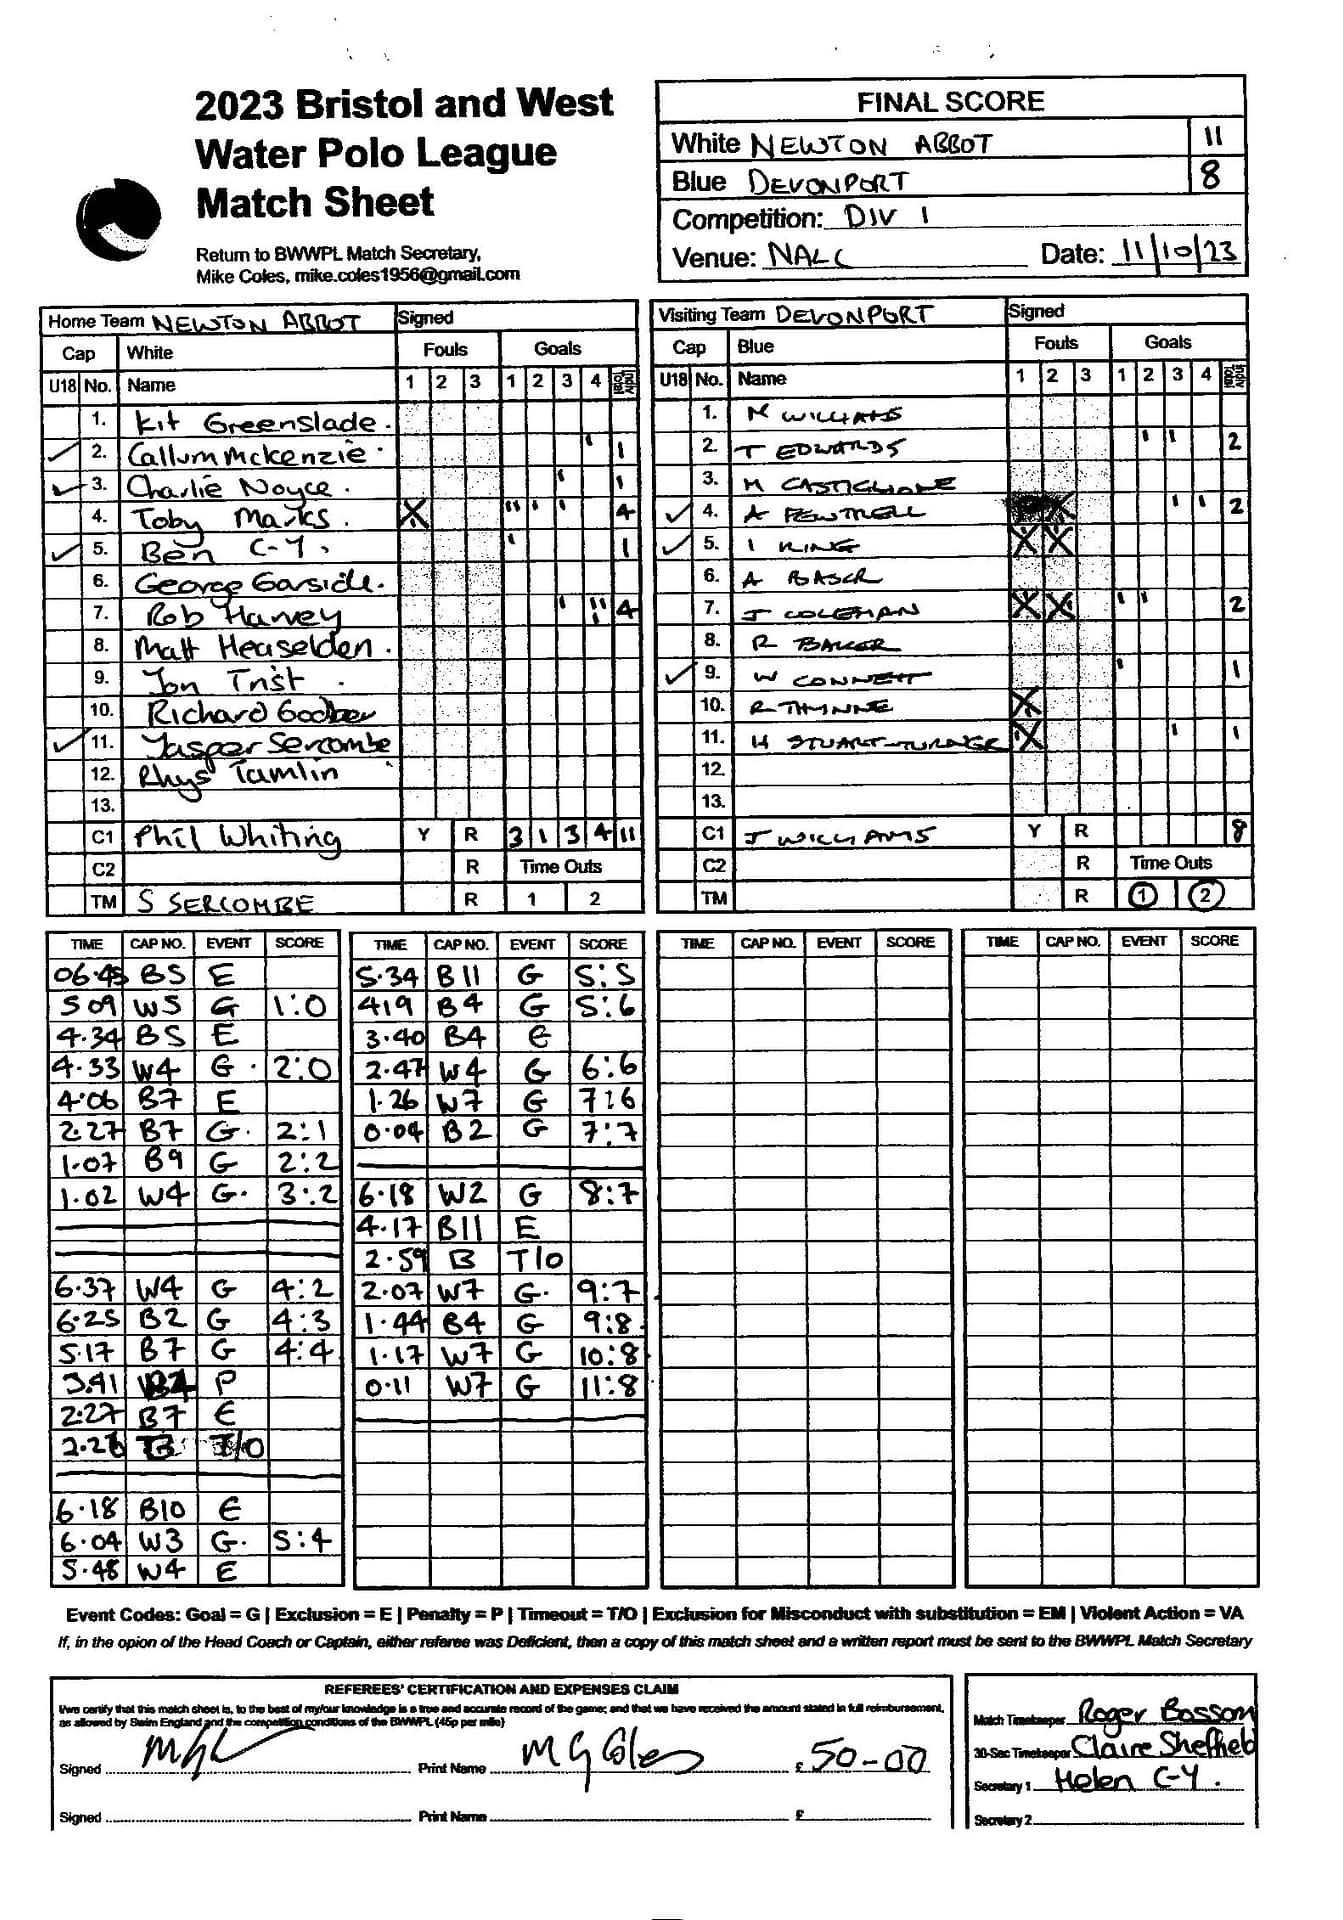 2023 Bristol and West
Water Polo League
Match Sheet
Return to BWWPL Match Secretary,
Mike Coles, mike.coles1956@gmail.com
FINAL SCORE
White NEWTON ABBOT 11
Blue DEVONPORT 8
Competition: DIV 1
Venue: NALC Date: 11/10/23
Home Team NEWTON ABBOT Signed
Cap White Fouls Goals
U18 No. Name 1 2 3 1 2 3 4 Indiv Total
1. Kit Greenslade.
✓ 2. Callum Mckenzie. ' 1
✓ 3. Charlie Noyce. ' 1
4. Toby Marks. X '' ' ' 4
✓ 5. Ben C-Y. ' 1
6. George Garside.
7. Rob Harvey ' ''' 4
8. Matt Heaselden.
9. Jon Trist.
10. Richard
✓ 11. Jasper Sercombe
12. Rhys Tamlin
13.
C1 Phil Whiting Y R 3 1 3 4 11
C2 R Time Outs
TM S SERCOMBE R 1 2
Visiting Team DEVONPORT Signed
Cap Blue Fouls Goals
U18 No. Name 1 2 3 1 2 3 4 Indiv Total
1. M WILLIAMS
2. T EDWARDS ' ' 2
3. M CASTIGLIONE
✓ 4. A PEWTRELL X ' ' 2
✓ 5. I KING X X
6. A
7. J COLEMAN X X ' ' 2
8. R BAKER
✓ 9. W CONNETT ' 1
10. R THYNNE X
11. H STUART-TURNER X ' 1
12.
13.
C1 J WILLIAMS Y R 8
C2 R Time Outs
TM R 1 2
TIME CAP NO. EVENT SCORE
06.45 B5 E
5 09 W5 G 1:0
4.34 B5 E
4.33 W4 G. 2:0
4.06 B7 E
2.27 B7 G. 2:1
1.07 B9 G 2:2
1.02 W4 G. 3:2
6.37 W4 G 4:2
6.25 B2 G 4:3
5.17 B7 G 4:4
3.41 P
2.27 B7 E
B T/O
6.18 B10 E
6.04 W3 G. 5:4
5.48 W4 E
TIME CAP NO. EVENT SCORE
5.34 B11 G 5:5
4.19 B4 G 5:6
3.40 B4 E
2.47 W4 G 6:6
1.26 W7 G 7:6
0.04 B2 G 7:7
6.18 W2 G 8:7
4.17 B11 E
2.59 B T/O
2.07 W7 G. 9:7
1.44 B4 G 9:8
1.17 W7 G 10:8
0.11 W7 G 11:8
TIME CAP NO. EVENT SCORE
TIME CAP NO. EVENT SCORE
Event Codes: Goal = G | Exclusion = E | Penalty = P | Timeout = T/O | Exclusion for Misconduct with substitution = EM | Violent Action = VA
If, in the opion of the Head Coach or Captain, either referee was Deficient, then a copy of this match sheet and a written report must be sent to the BWWPL Match Secretary
REFEREES' CERTIFICATION AND EXPENSES CLAIM
I/we certify that this match sheet is, to the best of my/our knowledge is a true and accurate record of the game; and that we have received the amount stated in full reimbursement,
as allowed by Swim England and the competition conditions of the BWWPL (45p per mile)
Signed Print Name M G Coles £ 50-00
Signed Print Name £
Match Timekeeper Roger Bosson
30-Sec Timekeeper Claire Sheffield
Secretary 1 Helen C-Y.
Secretary 2